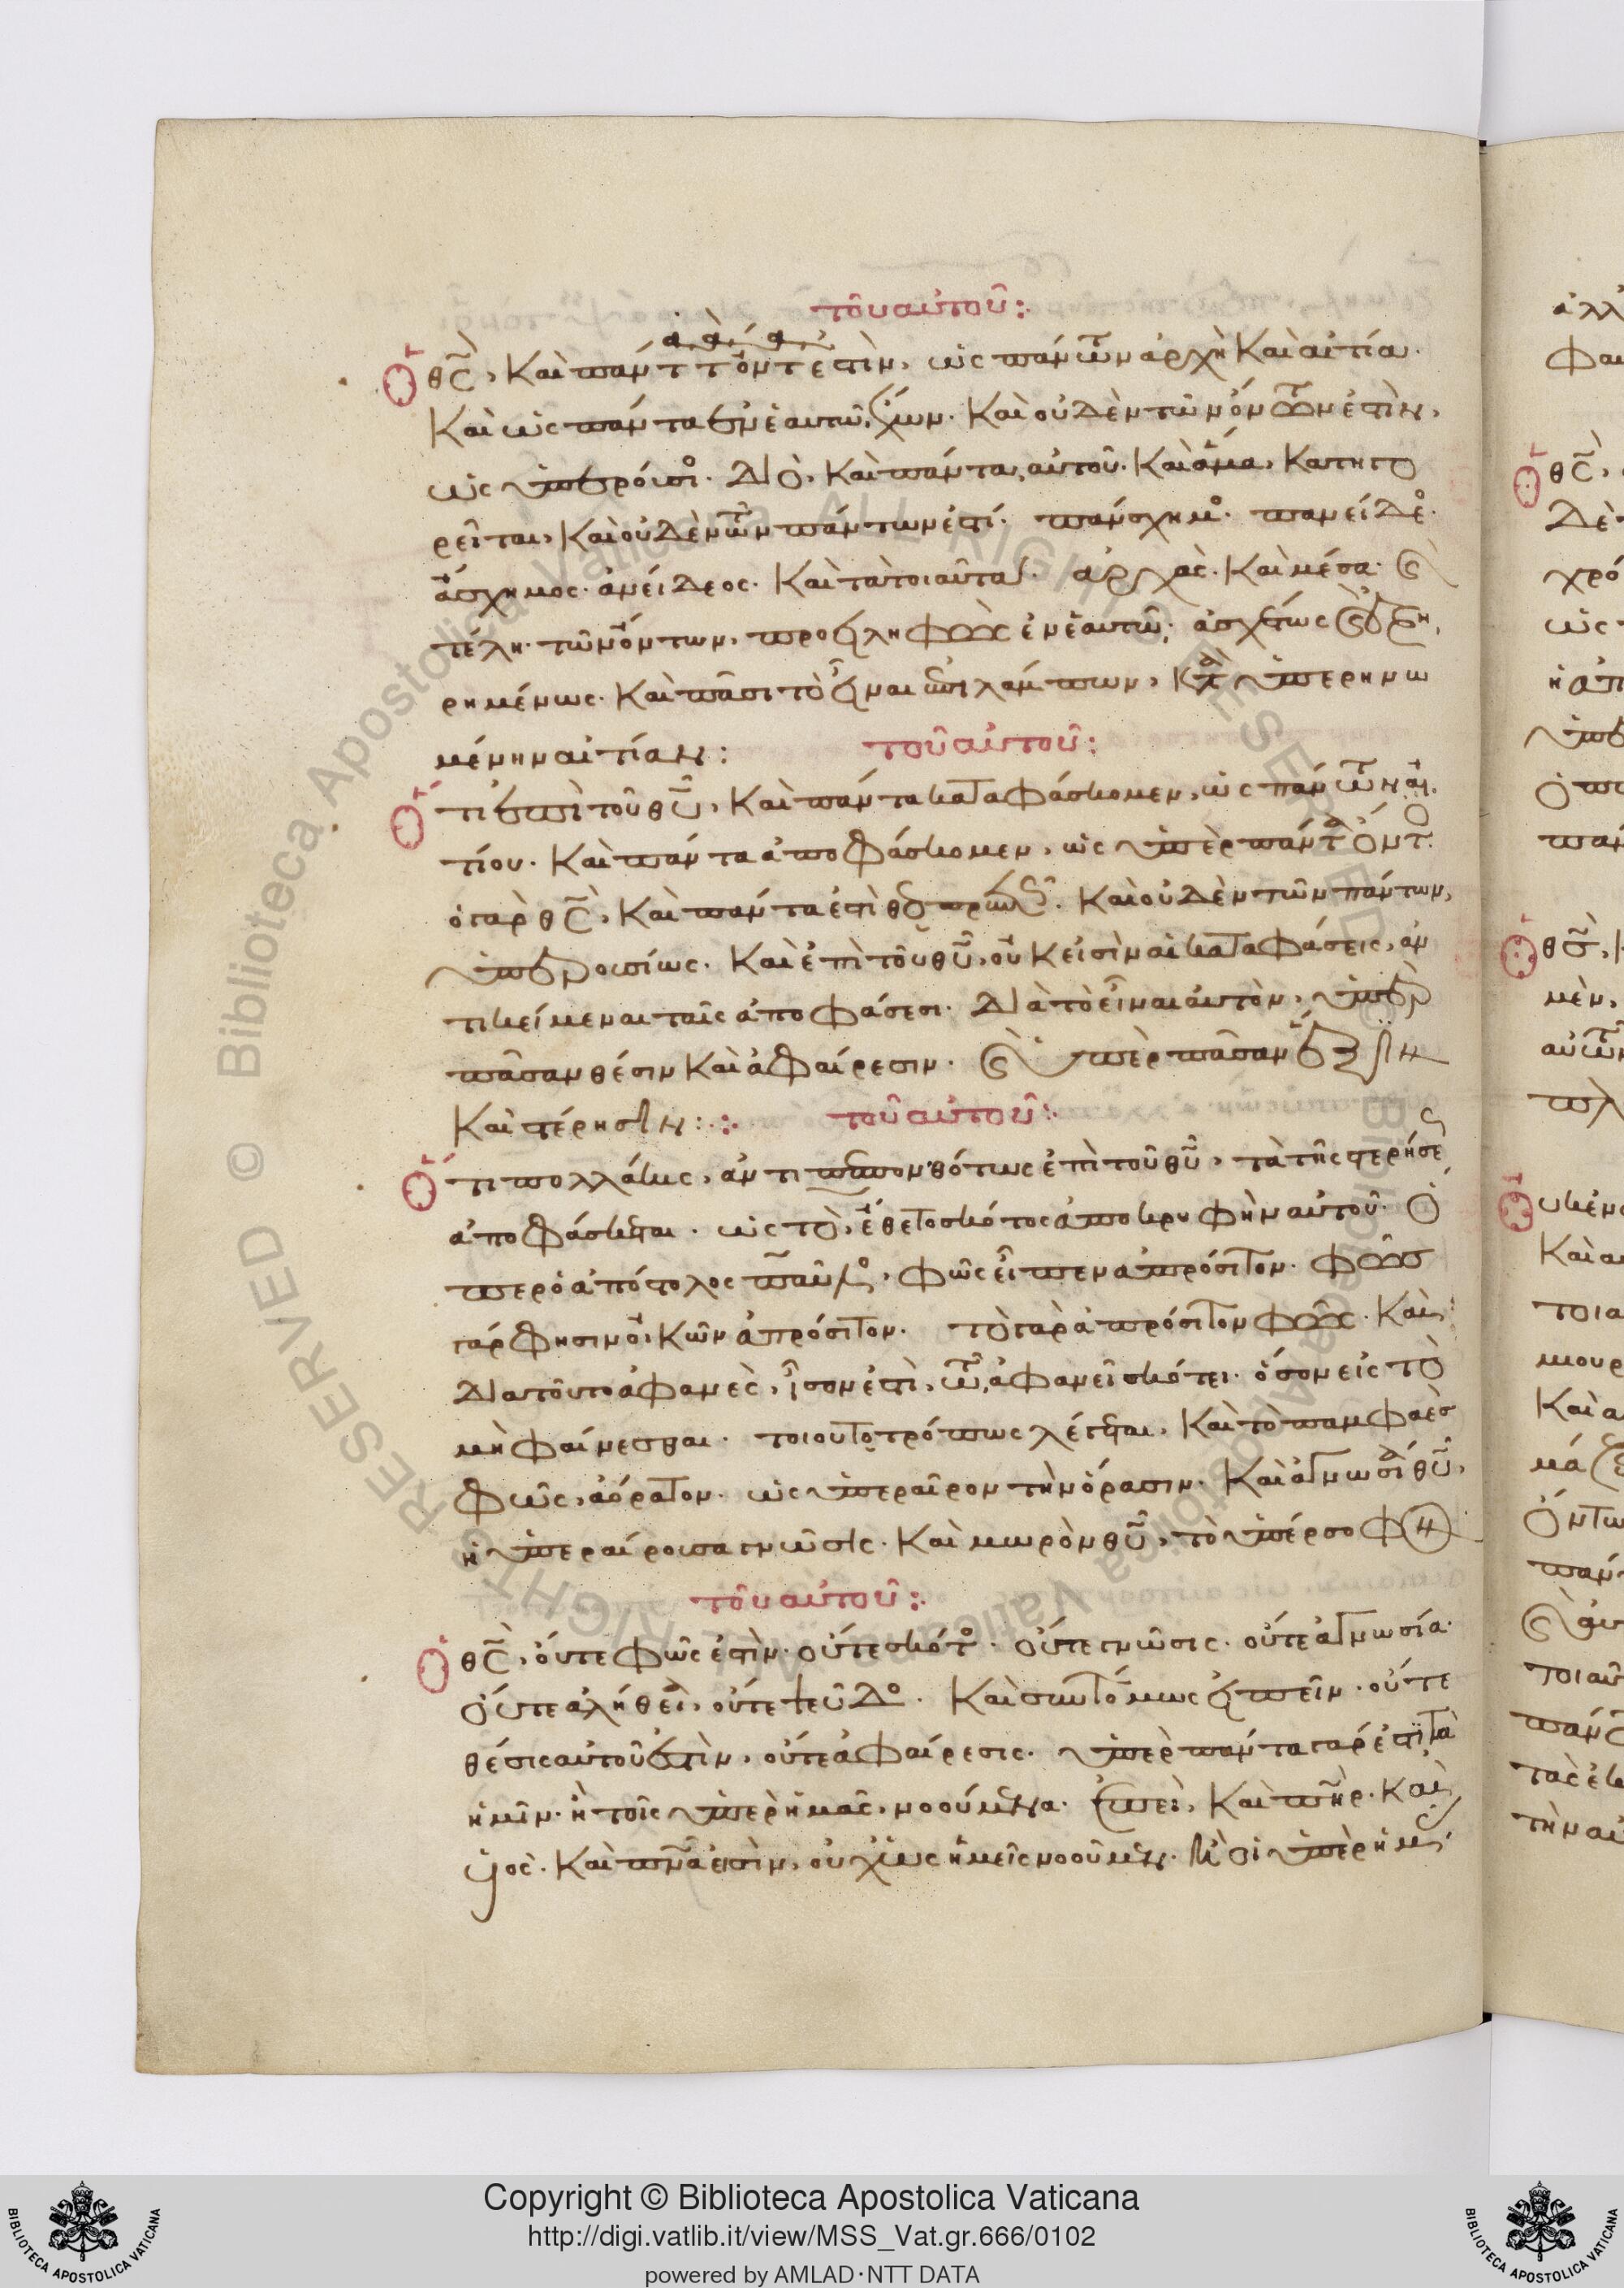 τοῦ αὐτοῦ:
Ὁ θς, καὶ πάντα τὰ ὄντα ἐστὶν, ὡς πάντων ἀρχὴ καὶ αἰτία.
καὶ ὡς πάντα ἐν ἑαυτῷ ἔχων. καὶ οὐδὲν τῶν ὄντων ἐστὶν,
ὡς ὑπερούσιος. διὸ, καὶ πάντα, αὐτοῦ. καὶ ἅμα, κατηγο
ρεῖται, καὶ οὐδὲν τῶν πάντων ἐστί. πάνσχημος. πανείδεος.
ἄσχημος. ἀνείδεος. καὶ τὰ τοιαῦτα. ἀρχὰς. καὶ μέσα. καὶ
τέλη. τῶν ὄντων, προειληφὼς ἐν ἑαυτῷ, ἀσχέτως καὶ ἐξῃ
ρημένως. καὶ πᾶσι τὸ εἶναι ἐπιλάμπων, κατὰ ὑπερηνω
μένην αἰτίαν: τοῦ αὐτοῦ:
Ὅτι ἐπὶ τοῦ θυ, καὶ πάντα καταφάσκομεν, ὡς πάντων αἰ
τίου. καὶ πάντα ἀποφάσκομεν, ὡς ὑπὲρ πάντα ὄντος.
ὁ γὰρ θς, καὶ πάντα ἐστὶ καὶ οὐδὲν τῶν πάντων,
ὑπερουσίως. καὶ ἐπὶ τοῦ θυ, οὔκ εἰσὶν αἱ καταφάσεις, ἀν
τικείμεναι ταῖς ἀποφάσεσι. διὰ τὸ εἶναι αὐτὸν, ὑπὲρ
πᾶσαν θέσιν καὶ ἀφαίρεσιν. καὶ ὑπὲρ πᾶσαν ἕξιν
καὶ στέρησιν: τοῦ αὐτοῦ:
Ὅτι πολλάκις, ἀντιπεπονθότως ἐπὶ τοῦ θυ, τὰ τῆς στερήσεως
ἀποφάσκεται. ὡς τὸ, ἔθετο σκότος ἀποκρυφὴν αὐτοῦ. Ὁ
περ ὁ ἀπόστολος παῦλος, φῶς εἶπεν ἀπρόσιτον. φῶς
γάρ φησιν οἰκῶν ἀπρόσιτον. τὸ γὰρ ἀπρόσιτον φῶς. καὶ
διατοῦτο ἀφανὲς, ἶσον ἐστὶ, τῷ ἀφανεῖ σκότει. ὅσον εἰς τὸ
μὴ φαίνεσθαι. τοιουτοτρόπως λέγεται, καὶ τὸ παμφαὲς
φῶς, ἀόρατον. ὡς ὑπεραῖρον τὴν ὅρασιν. καὶ ἀγνωσία θυ,
ἡ ὑπεραίρουσα γνῶσις. καὶ μωρὸν θυ, τὸ ὑπέρσοφον
τοῦ αὐτοῦ:
Ὁ θς, οὔτε φῶς ἐστὶν. οὔτε σκότος. οὔτε γνῶσις. οὔτε ἀγνωσία.
οὔτε ἀλήθεια, οὔτε ψεῦδος. καὶ συντόμως εἰπεῖν. οὔτε
θέσις αὐτοῦ ἐστὶν, οὔτε ἀφαίρεσις. ὑπὲρ πάντα γάρ ἐστι, τὰ
ἡμῖν. ἢ τοῖς ὑπὲρ ἡμᾶς, νοούμενα. ἐπεὶ, καὶ πηρ. καὶ
υἱὸς. καὶ πνα ἐστὶν, οὐχ ὡς ἡμεῖς νοοῦμεν. ὑπὲρ ἡμᾶς